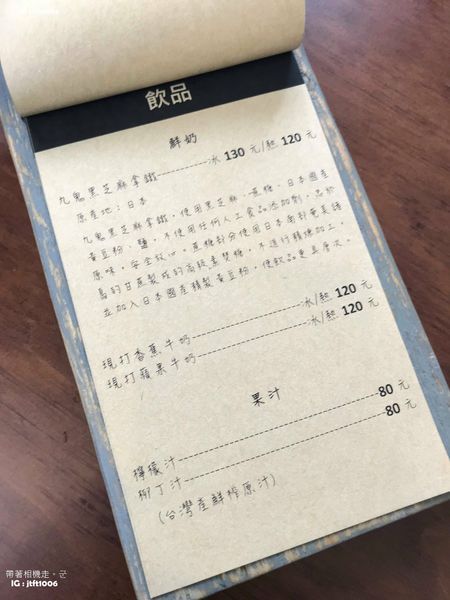 飲品
鮮奶
九鬼黑芝麻拿鐵 冰 130 元/熱 120 元
原產地：日本
九鬼黑芝麻拿鐵，使用黑芝麻、蔗糖、日本國產
黃豆粉、鹽，不使用任何人工食品添加劑，品於
原味，安全放心。蔗糖部分使用日本南部奄美諸
島的甘蔗製成的高級素焚糖，不進行精煉加工，
並加入日本國產精製黃豆粉，使飲品更具層次。
現打香蕉牛奶 冰/熱 120 元
現打蘋果牛奶 冰/熱 120 元
果汁
檸檬汁 80 元
柳丁汁 80 元
(台灣產鮮榨原汁)
帶著相機走。芒
IG : jtft1006